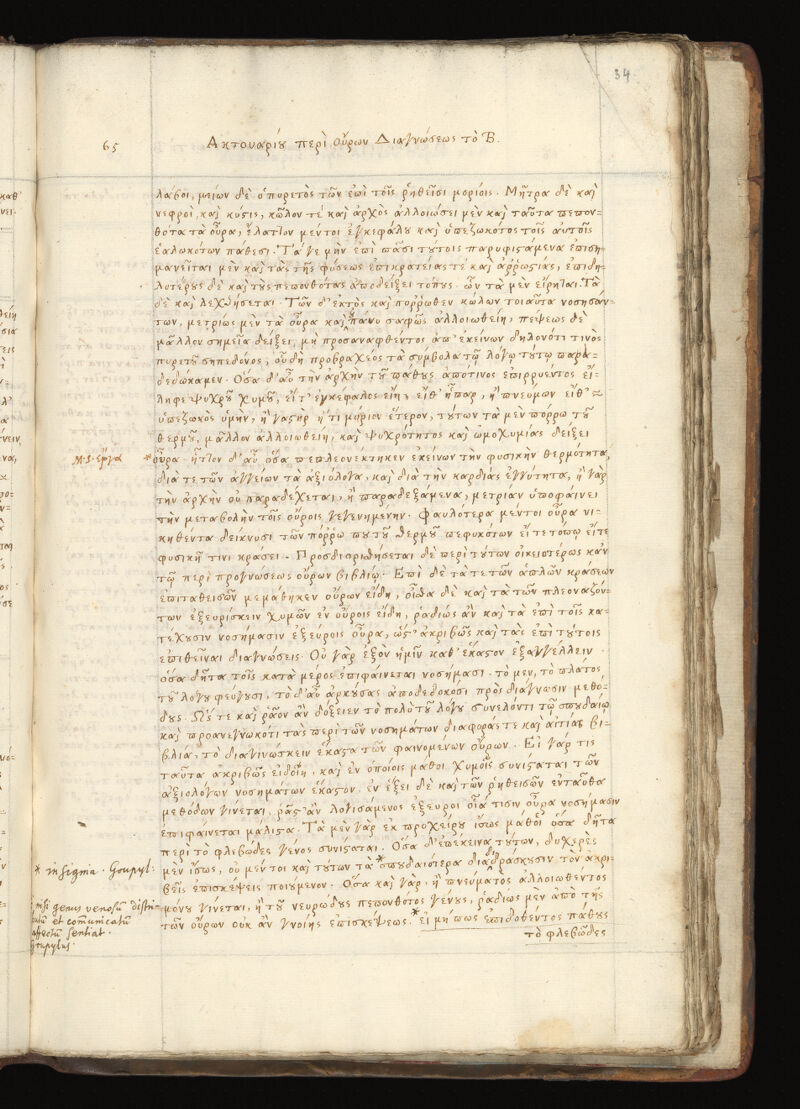 34
65 Ακτουαρίου περὶ Οὔρων Διαγνώσεως τὸ Β.
λάβοι, μείων δὲ ὁ πυρετὸς τῶν ἐπὶ τοῖς ῥηθεῖσι μορίοις. Μήτρα δὲ καὶ
νεφροὶ, καὶ κύστις, κῶλον τὲ καὶ ἀρχὸς ἀλλοιώσει μὲν καὶ ταῦτα πεπον-
θότα τὰ οὖρα, ἔλαττον μέντοι ἐγκεφάλου καὶ ὑπεζωκότος τοῖς αὐτοῖς
ἑαλωκότων πάθεσι. Τά γε μὴν ἐπὶ πᾶσι τούτοις παρυφιστάμενα ἐπιση-
μανεῖται μὲν καὶ τὰς τῆς φύσεως ἐπικρατείας τὲ καὶ ἀῤῥωστίας, ἐπιδη-
λοτέρους δὲ καὶ τοὺς πεπονθότας ἀποδείξει τόπους. ὧν τὰ μὲν εἴρηται. Τὰ
δὲ καὶ λεχθήσεται. Τῶν δ' ἐκτὸς καὶ πόῤῥωθεν κώλων τοιαῦτα νοσησάν-
των, μετρίως μὲν τὰ οὖρα καὶ πάνυ σαφῶς ἀλλοιωθείη, πέψεως δὲ
μᾶλλον σημεῖα δείξει, μὴ προσαναφθέντος ἀπ' ἐκείνων δηλονότι τινὸς
πυρετοῦ σηπεδόνος, οὗ δὴ προβραχέος τὰ σύμβολα τῷ λόγῳ τούτῳ παρα-
δεδώκαμεν. Ὅσα δ' αὖ τὴν ἀρχὴν τοῦ πάθους ἀπό τινος ἐπιῤῥυέντος εἴ-
ληφε ψυχροῦ χυμοῦ, εἴτ' ἐγκέφαλος εἴη, εἴθ' ἧπαρ, ἢ πνεύμων εἴθ'
ὑπεζωκὸς ὑμὴν, ἢ γαστὴρ ἤ τι μόριον ἕτερον, τούτων τὰ μὲν πόῤῥω τοῦ
θερμοῦ, μᾶλλον ἀλλοιωθείη, καὶ ψυχρότητος καὶ ὠμοχυμίας δείξει
M.S. ἔργα
*οὖρα. ἧττον δ' αὖ ὅσα πεπλεονέκτηκεν ἐκείνων τὴν φυσικὴν θερμότητα,
διά τε τῶν ἀγγείων τὰ ἀξιόλογα, καὶ διὰ τὴν καρδίας ἐγγύτητα, ἢ γὰρ
τὴν ἀρχὴν οὐ παραδέχεται, ἢ παραδεξάμενα, μετρίαν ὑποφαίνει
τὴν μεταβολὴν τοῖς οὔροις γεγενημένην. Φαυλότερα μέντοι οὖρα νι-
κηθέντα δείκνυσι τῶν πόῤῥω που τοῦ θερμοῦ πεφυκότων εἴτε τόπῳ εἴτε
φυσικῇ τινι κράσει. Προσδιορισθήσεται δὲ περὶ τούτων οἰκειοτέρως κἀν
τῷ περὶ προγνώσεως οὔρων βιβλίῳ. Ἐπεὶ δὲ τά τε τῶν ἁπλῶν κράσεων
ἐπιταθεισῶν μεμάθηκεν οὔρων εἴδη, οἶδα δὲ καὶ τὰ τῶν πλεοναζόν-
των ἐξευρίσκειν χυμῶν ἐν οὔροις εἴδη, ῥαδίως ἂν καὶ τὰ ἐπὶ τοῖς κα-
τέχουσιν νοσήμασιν ἐξεύροις οὖρα, ὥς τ' ἀκριβῶς καὶ τὰς ἐπὶ τούτοις
ἐπιθεῖναι διαγνώσεις. Οὐ γὰρ ἐξὸν ἡμῖν καθ' ἕκαστον ἐξαγγέλλειν.
ὅσα δῆτα τοῖς κατὰ μέρος ἐπιφαίνεται νοσήμασι. τὸ μὲν, τὸ πλάτος
τοῦ λόγου φεύγουσι, τὸ δ' αὖ ἀρκούσας ἀποδεδοκόσι πρὸς διάγνωσιν μεθό-
δους. Ὥς τε καὶ ῥᾷον ἂν δόξειεν τὸ πολὺ τοῦ λόγου συνελόντι τῷ σπουδαίῳ
καὶ προανεγνωκότι τὰς περὶ τῶν νοσημάτων διαφορὰς τε καὶ αἰτίας βι-
βλία, τὸ διαγινώσκειν ἕκαστα τῶν φαινομένων οὔρων. Εἰ γάρ τις
ταῦτα ἀκριβῶς εἰδείη, καὶ ἐν ὁποίοις μάθοι χυμοῖς συνίσταται τῶν
ἀξιολόγων νοσημάτων ἕκαστον. ἐν ἕξει δὲ καὶ τῶν ῥηθεισῶν ἐνταῦθα
μεθόδων γίνεται, ῥᾷστ' ἂν λογισάμενος ἐξεύροι οἷά τισιν οὖρα νοσήμασιν
ἐπιφαίνεται μάλιστα. Τὰ μὲν γὰρ ἐκ προχείρου ἴσως μάθοι ὅσα δῆτα
περὶ τὸ φλεβῶδες γένος συνίσταται. Ὅσα δ' ἐπέκεινα τούτων, δυσχερὲς
μὲν ἴσως, οὐ μέντοι καὶ τούτων τὰ *σπουδαιότερα διαδράσκουσιν τὸν ἀκρι-
βεῖς ἐπισκέψεις ποιούμενον. Ὅσα καὶ γὰρ, ἢ πνεύματος ἀλλοιωθέντος
μόνου γίνεται, ἢ τοῦ νευρώδους πεπονθότος γένους, ῥαδίως μὲν ἀπὸ τῆς
τῶν οὔρων οὐκ ἂν γνοίης ἐπισκέψεως. *εἰ μή πως ἐπιδοθέντος πάθους
τὸ φλεβῶδες
* insigma. Goupyl.
nisi genus venosum distri-
et communicatū
affectū sentiat.
Goupylus.